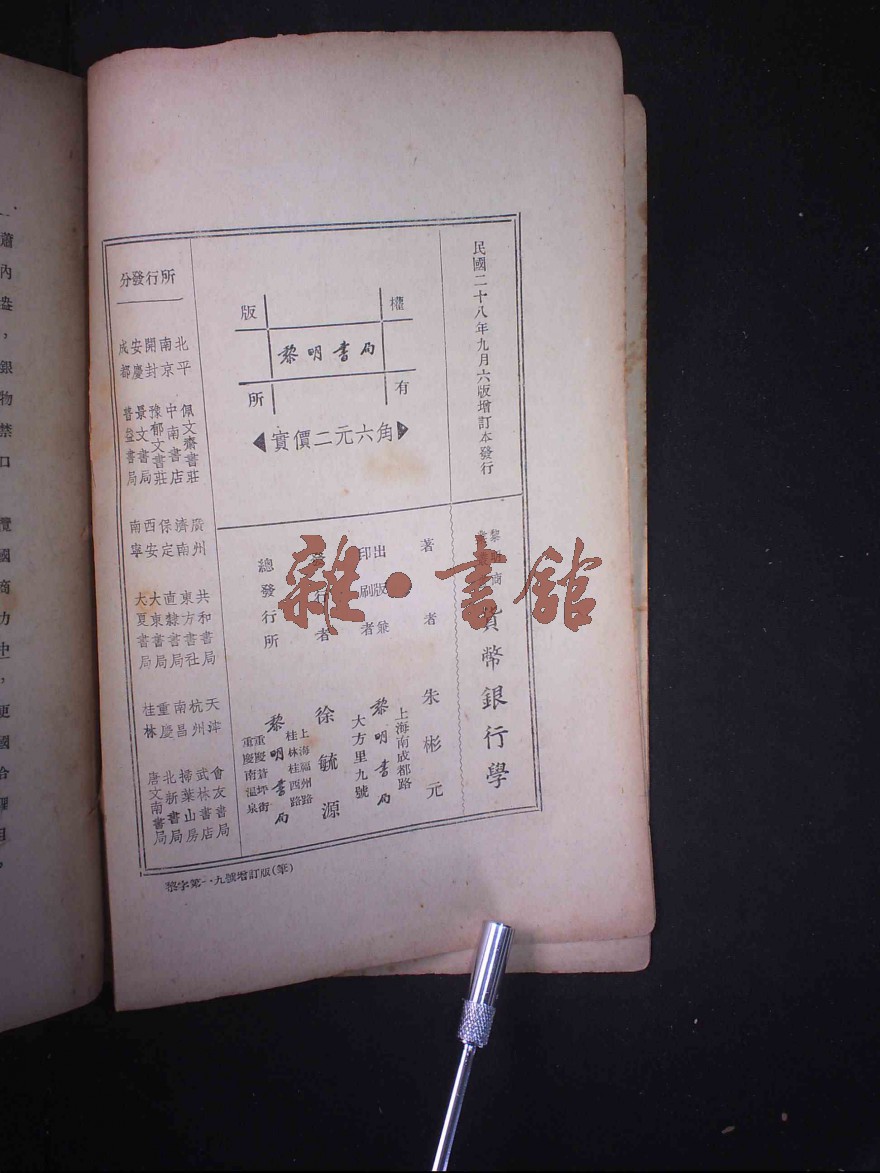 民國二十八年九月六版增訂本發行
版權所有
黎明書局
實價二元六角
貨幣銀行學
著者 朱彬元
出版兼印刷者 黎明書局
上海南成都路
大方里九號
發行者 徐毓源
總發行所 黎明書局
上海福州路
桂林桂西路
重慶南溫泉
分發行所
北平 佩文齋書莊
南京 中南書店
開封 豫郁文書莊
安慶 景文書局
成都 書局
廣州 共和書局
濟南 東方書社
保定 直隸書局
西安 大東書局
南寧 大夏書局
天津 會友書局
杭州 武林書店
南昌 掃葉山房
重慶 北新書局
桂林 唐文南書局
黎字第一九號增訂版(筆)
雜·書館